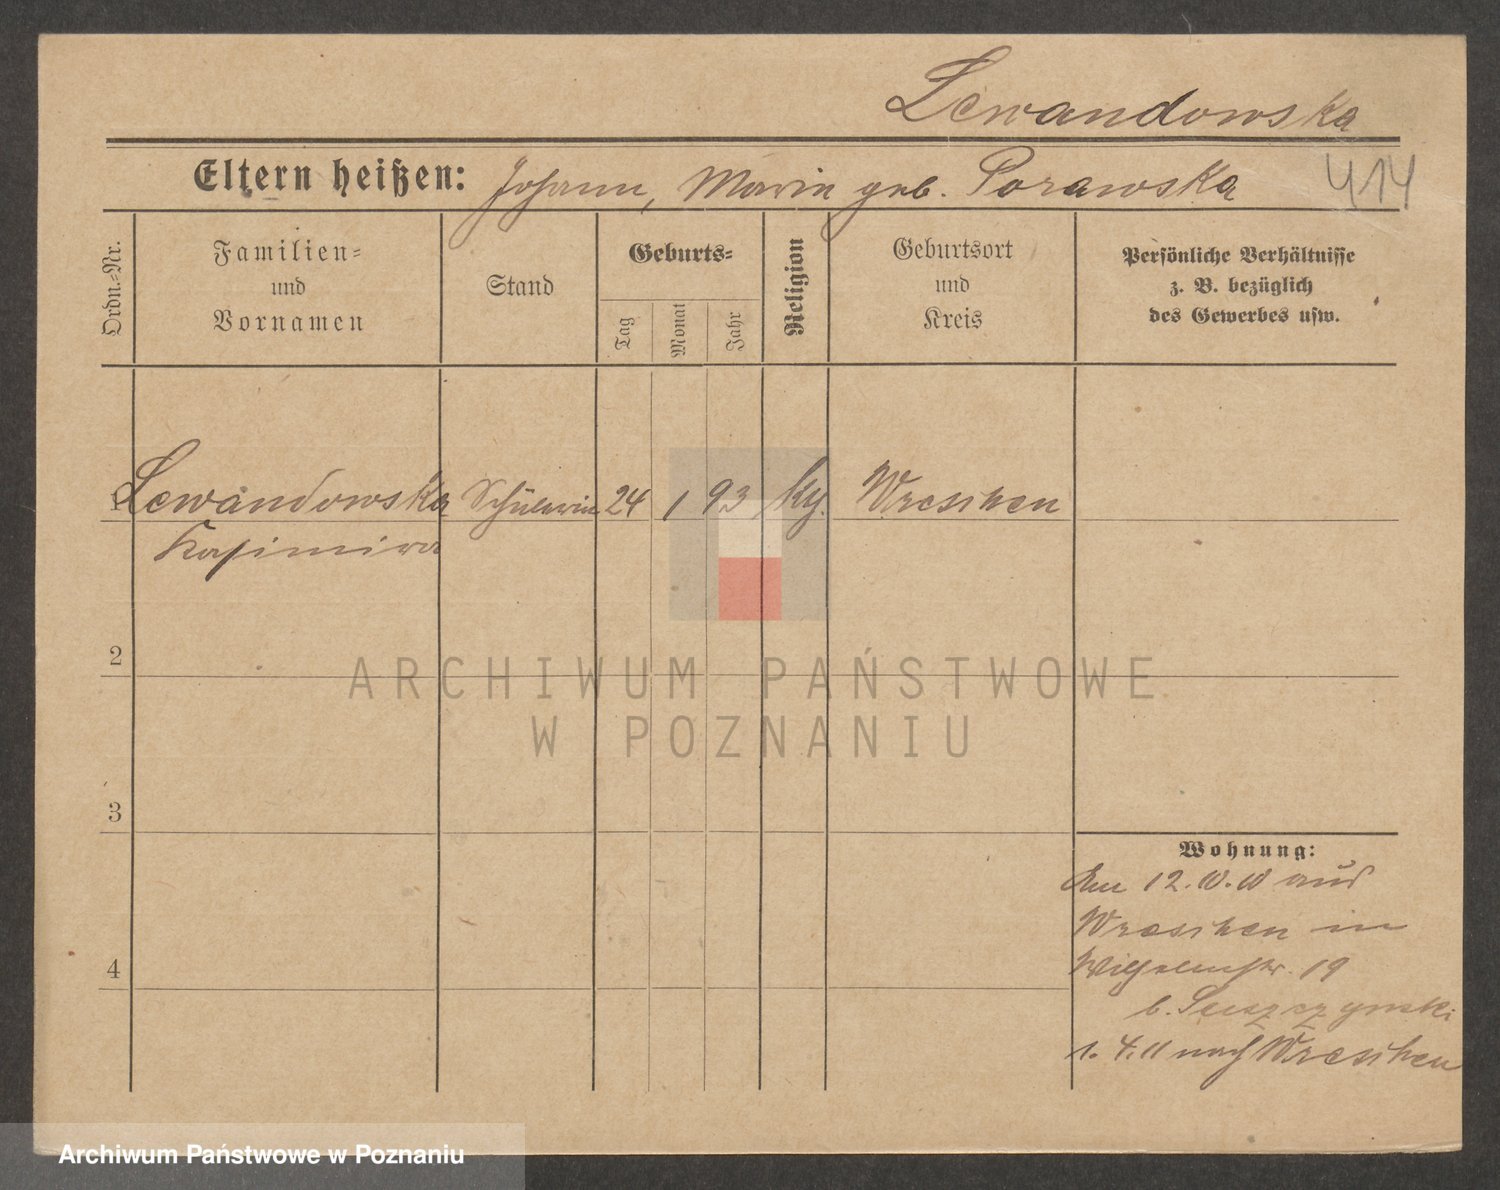 Lewandowska
Eltern heißen: Johann, Maria geb. Porawska
414
Ordn.-Nr.
Familien-
und
Vornamen
Stand
Geburts-
Tag
Monat
Jahr
Religion
Geburtsort
und
Kreis
Persönliche Verhältnisse
z. B. bezüglich
des Gewerbes usw.
1 Lewandowska Schülerin 24 1 93 Wreschen
Kasimira
2
3
4
Wohnung:
Am 12.10.10 aus
Wreschen in
Wilhelmstr. 19
b.
1.4.11 nach Wreschen
ARCHIWUM PAŃSTWOWE
W POZNANIU
Archiwum Państwowe w Poznaniu